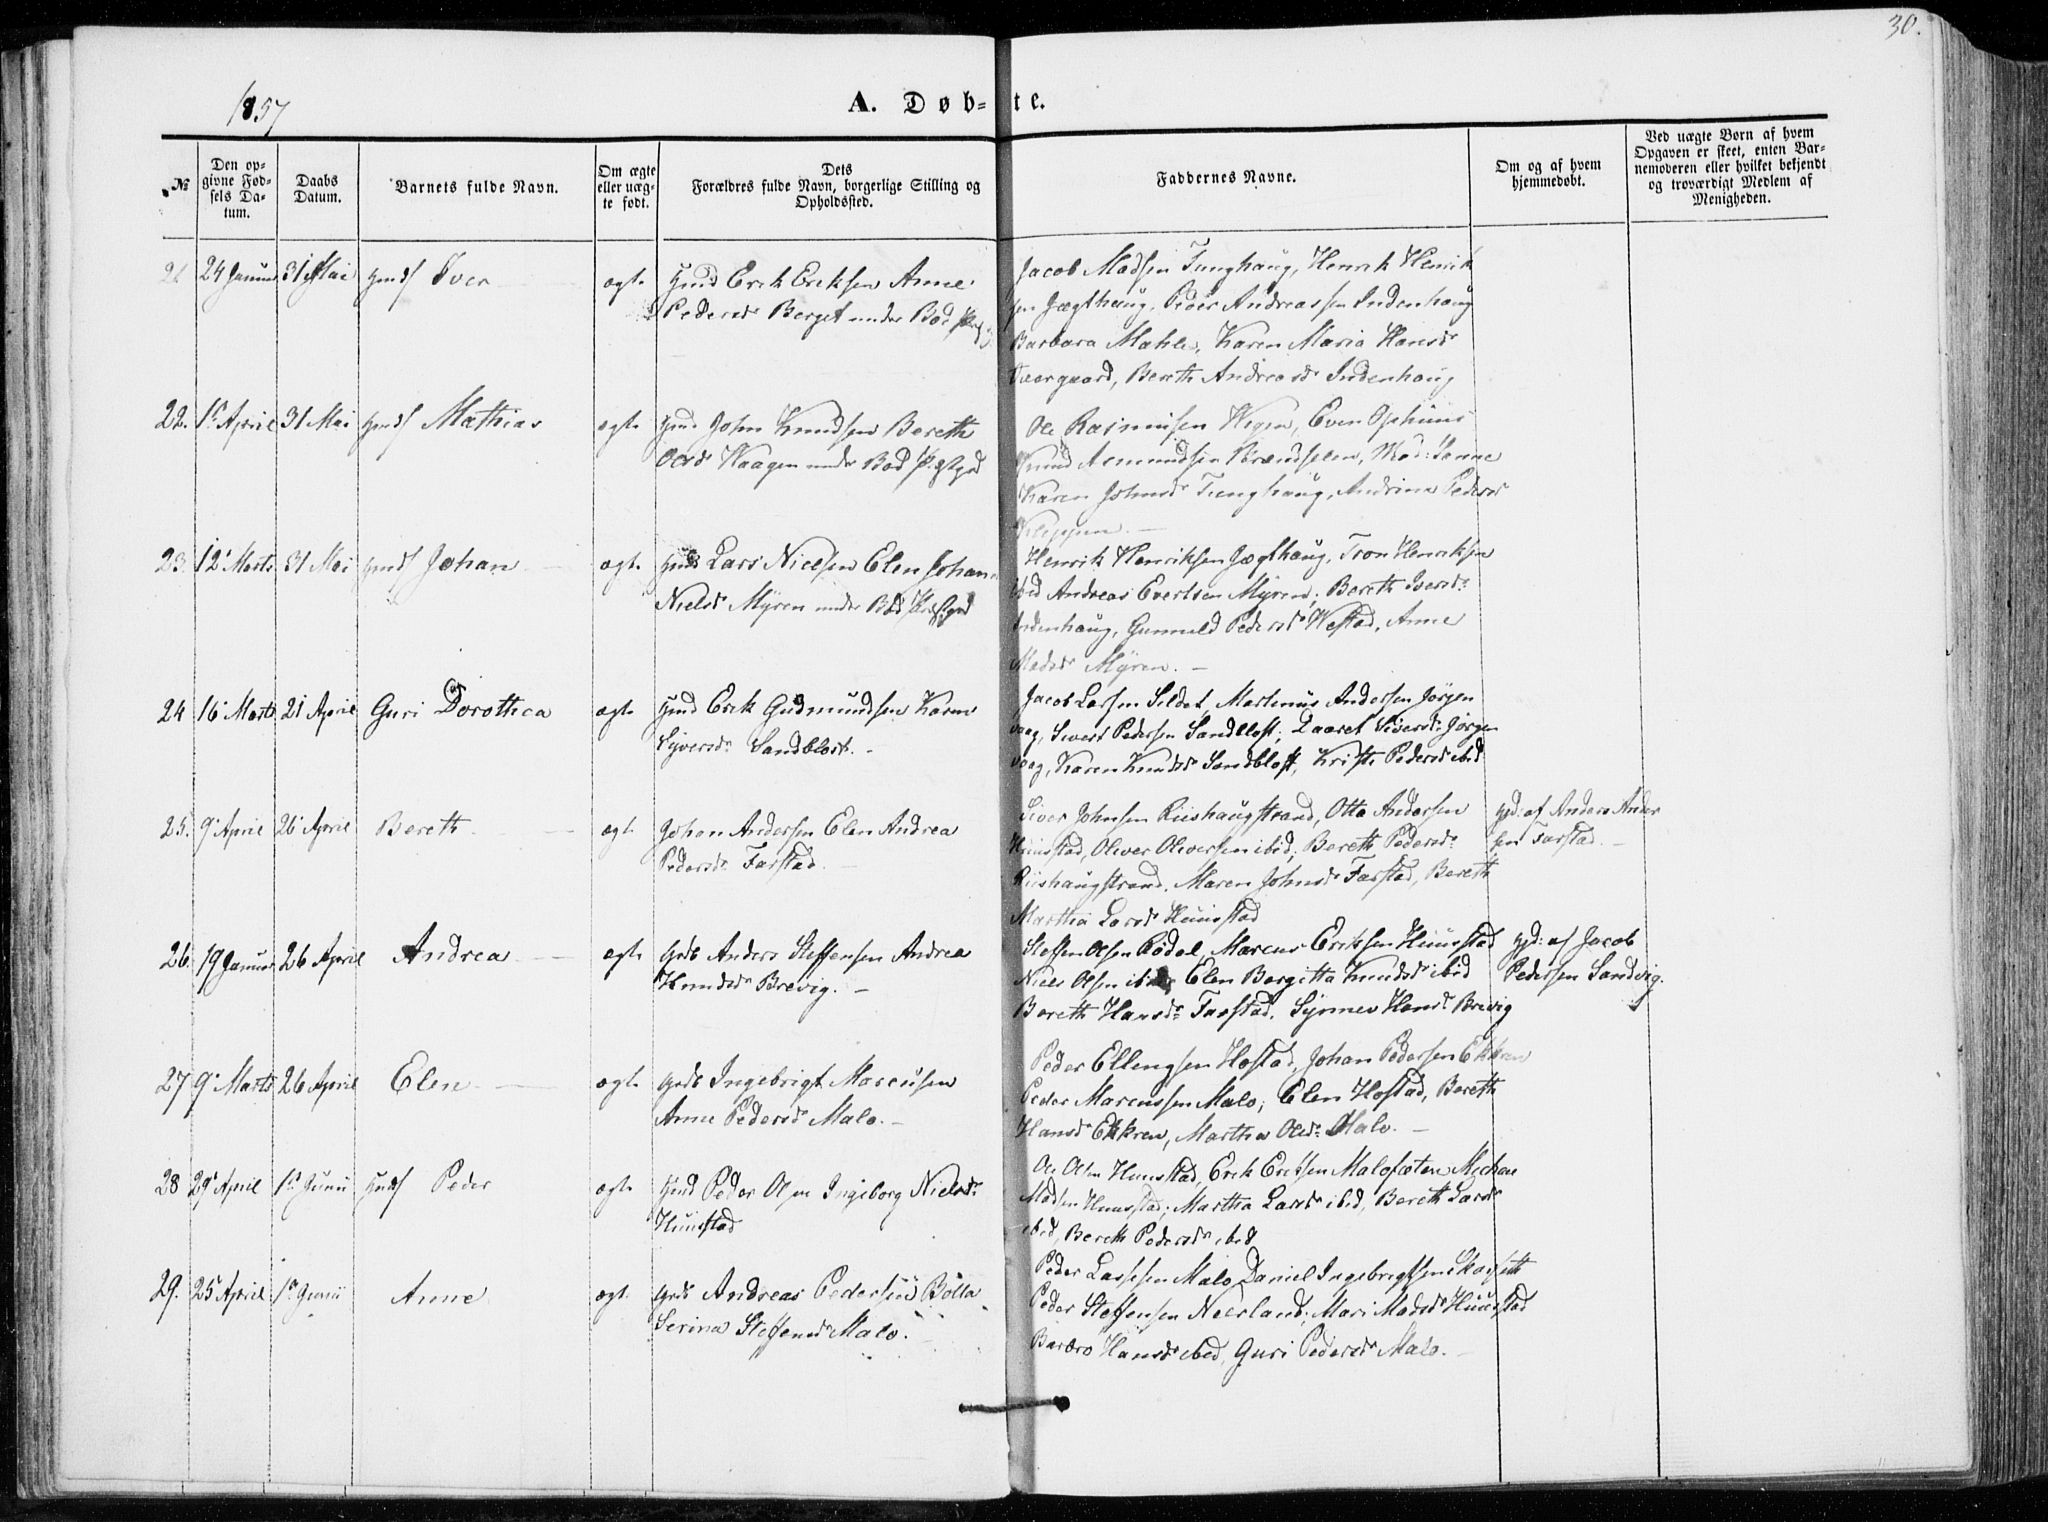 30.
1857
A. Døb-te.
№
Den op-
givne Fød-
sels Da-
tum.
Daabs
Datum.
Barnets fulde Navn.
Om ægte
eller uæg-
te født.
Dets
Forældres fulde Navn, borgerlige Stilling og
Opholdssted.
Faddernes Navne.
Om og af hvem
hjemmedøbt.
Ved uægte Børn af hvem
Opgaven er skeet, enten Bar-
nemoderen eller hvilket bekjendt
og troværdigt Medlem af
Menigheden.
21 24 Januar 31 Mai Iver ægte Erik Eriksen Anne
Pedersd. Berget under Bod
Jacob Madsen Tunghaug, Henrik Henrik
sen Jægthaug, Peder Andreassen Indenhaug
Barbara Mahle, Karen Maria Hansd.
Bereth Andreasd. Indenhaug
22. 1 April 31 Mai Mathias ægte John Knudsen Bereth
Olesd. Waagen under Bod
Ole Rasmussen Wigen, Even Ophuus
Knud Aamundsen
Karen Johnsd. Tunghaug, Andrina Pedersd.
Kleppen. —
23. 12 Marts 31 Mai Johan ægte Lars Nielsen Elen Johan
Nielsd. Myren under Bod
Henrik Henriksen Jægthaug, Tron Henriksen
ibid Andreas Evertsen Myren; Bereth Iversd.
Indenhaug, Gunnild Pedersd. Westad, Anne
Madsd. Myren. —
24 16 Marts 21 April Guri Dorothea ægte Erik Gudmundsen Karen
Sijversd. Sandblost. —
Jacob Larsen Sildet, Martinus Andersen Jørgen
vaag, Sivert Pedersen Sandblost; Sivertsd. Jørgen
vaag, Karen Knudsd. Sandblost, Kristi Pedersd. ibid
25. 9 April 26 April Bereth ægte Johan Andersen Elen Andrea
Pedersd. Farstad —
Siver Johnsen Riishaugstrand, Otto Andersen
Huustad, Oliver Oliversen ibid; Bereth Pedersd.
Riishaugstrand, Maren Johnsd. Farstad, Bereth
Martha Larsd. Huustad
hjd: af Anders Ander
sen Farstad. —
26 19 Januar 26 April Andrea ægte Anders Steffensen Andrea
Knudsd. Brevig. —
Steffen Olsen Rødal, Marcus Eriksen Huustad
Niels Olsen ibid; Elen Bergitta Knudsd. ibid
Bereth Hansd. Farstad, Synnev Hansd. Brevig
hjd: af Jacob
Pedersen Sandvig.
27 9 Marts 26 April Elen ægte Ingebrigt Marcusen
Anne Pedersd. Malo. —
Peder Ellingsen Hostad, Johan Pedersen Ekkren
Peder Marcussen Malo; Elen Hostad, Bereth
Hansd. Ekkren, Martha Olesd. Malo. —
28 29 April 1 Junii Peder ægte Peder Olsen Ingeborg Nielsd.
Huustad
Ole Olsen Huustad, Erik Eriksen Malofæten Michael
Madsen Huustad; Martha Larsd. ibid, Bereth Larsd.
ibid, Bereth Pedersd. ibid
29. 25 April 1 Junii Anne ægte Andreas Pedersen
Serina Steffensd. Malo.
Peder Lassesen Malo, Daniel Ingebrigtsen Skarseth
Peder Steffensen Neerland; Mari Madsd. Huustad
Barbro Hansd. ibid, Guri Pedersd. Malo. —